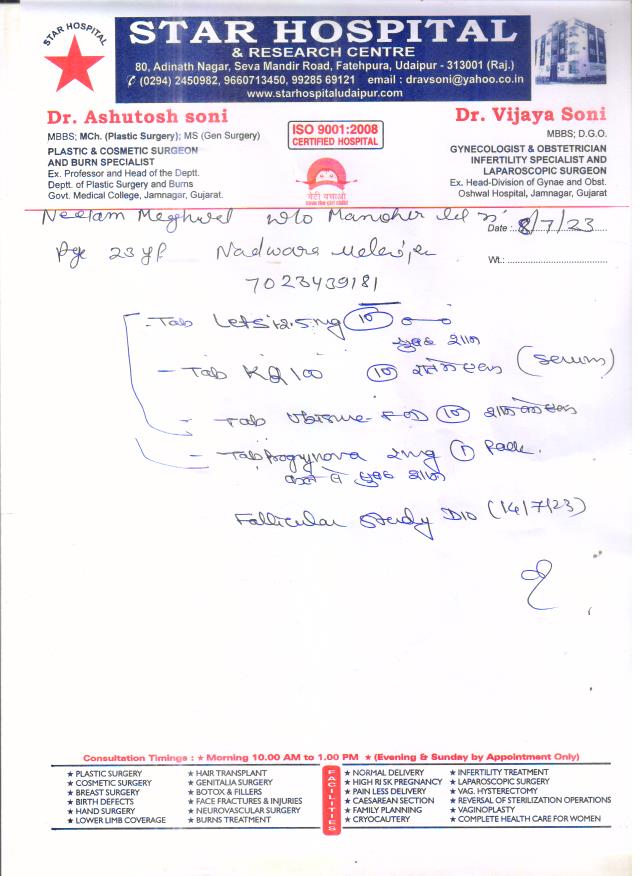 STAR HOSPITAL
STAR HOSPITAL
& RESEARCH CENTRE
80, Adinath Nagar, Seva Mandir Road, Fatehpura, Udaipur - 313001 (Raj.)
(0294) 2450982, 9660713450, 99285 69121 email : dravsoni@yahoo.co.in
www.starhospitaludaipur.com
Dr. Ashutosh soni
MBBS; MCh. (Plastic Surgery); MS (Gen Surgery)
PLASTIC & COSMETIC SURGEON
AND BURN SPECIALIST
Ex. Professor and Head of the Deptt.
Deptt. of Plastic Surgery and Burns
Govt. Medical College, Jamnagar, Gujarat.
ISO 9001:2008
CERTIFIED HOSPITAL
बेटी बचाओ
Dr. Vijaya Soni
MBBS; D.G.O.
GYNECOLOGIST & OBSTETRICIAN
INFERTILITY SPECIALIST AND
LAPAROSCOPIC SURGEON
Ex. Head-Division of Gynae and Obst.
Oshwal Hospital, Jamnagar, Gujarat
Neelam Meghwal w/o Manoher lal
Date :.. 8/7/23
Age 23 yr
Wt.:
7023439181
- Tab 10
सुबह शाम
- Tab 100 10 (Serum)
- Tab 10
- Tab Progynova 2mg 1 Pack.
सुबह शाम
Follicular Study D10 (14/7/23)
Consultation Timings : ★ Morning 10.00 AM to 1.00 PM ★ (Evening & Sunday by Appointment Only)
★ PLASTIC SURGERY
★ COSMETIC SURGERY
★ BREAST SURGERY
★ BIRTH DEFECTS
★ HAND SURGERY
★ LOWER LIMB COVERAGE
★ HAIR TRANSPLANT
★ GENITALIA SURGERY
★ BOTOX & FILLERS
★ FACE FRACTURES & INJURIES
★ NEUROVASCULAR SURGERY
★ BURNS TREATMENT
FACILITIES
★ NORMAL DELIVERY
★ HIGH RISK PREGNANCY
★ PAIN LESS DELIVERY
★ CAESAREAN SECTION
★ FAMILY PLANNING
★ CRYOCAUTERY
★ INFERTILITY TREATMENT
★ LAPAROSCOPIC SURGERY
★ VAG. HYSTERECTOMY
★ REVERSAL OF STERILIZATION OPERATIONS
★ VAGINOPLASTY
★ COMPLETE HEALTH CARE FOR WOMEN